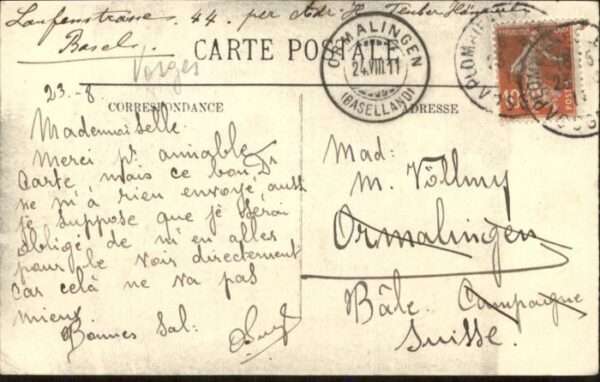 Laufenstrasse 44. per Adr. H.
Basel.
CARTE POSTALE
Vosges
ORMALINGEN
24.VIII.11
(BASELLAND)
PLOMB
10
POSTES
23.-8
CORRESPONDANCE
ADRESSE
Mademoiselle.
Merci pr. amiable
Carte, mais ce bon Dr
ne m'a rien envoyé, aussi
je suppose que je serai
obligé de m'en aller
pour le voir directement
Car celà ne va pas
mieux.
Bonnes Sal:
Mad:
M. Völlmy
Ormalingen
Bâle Campagne
Suisse.